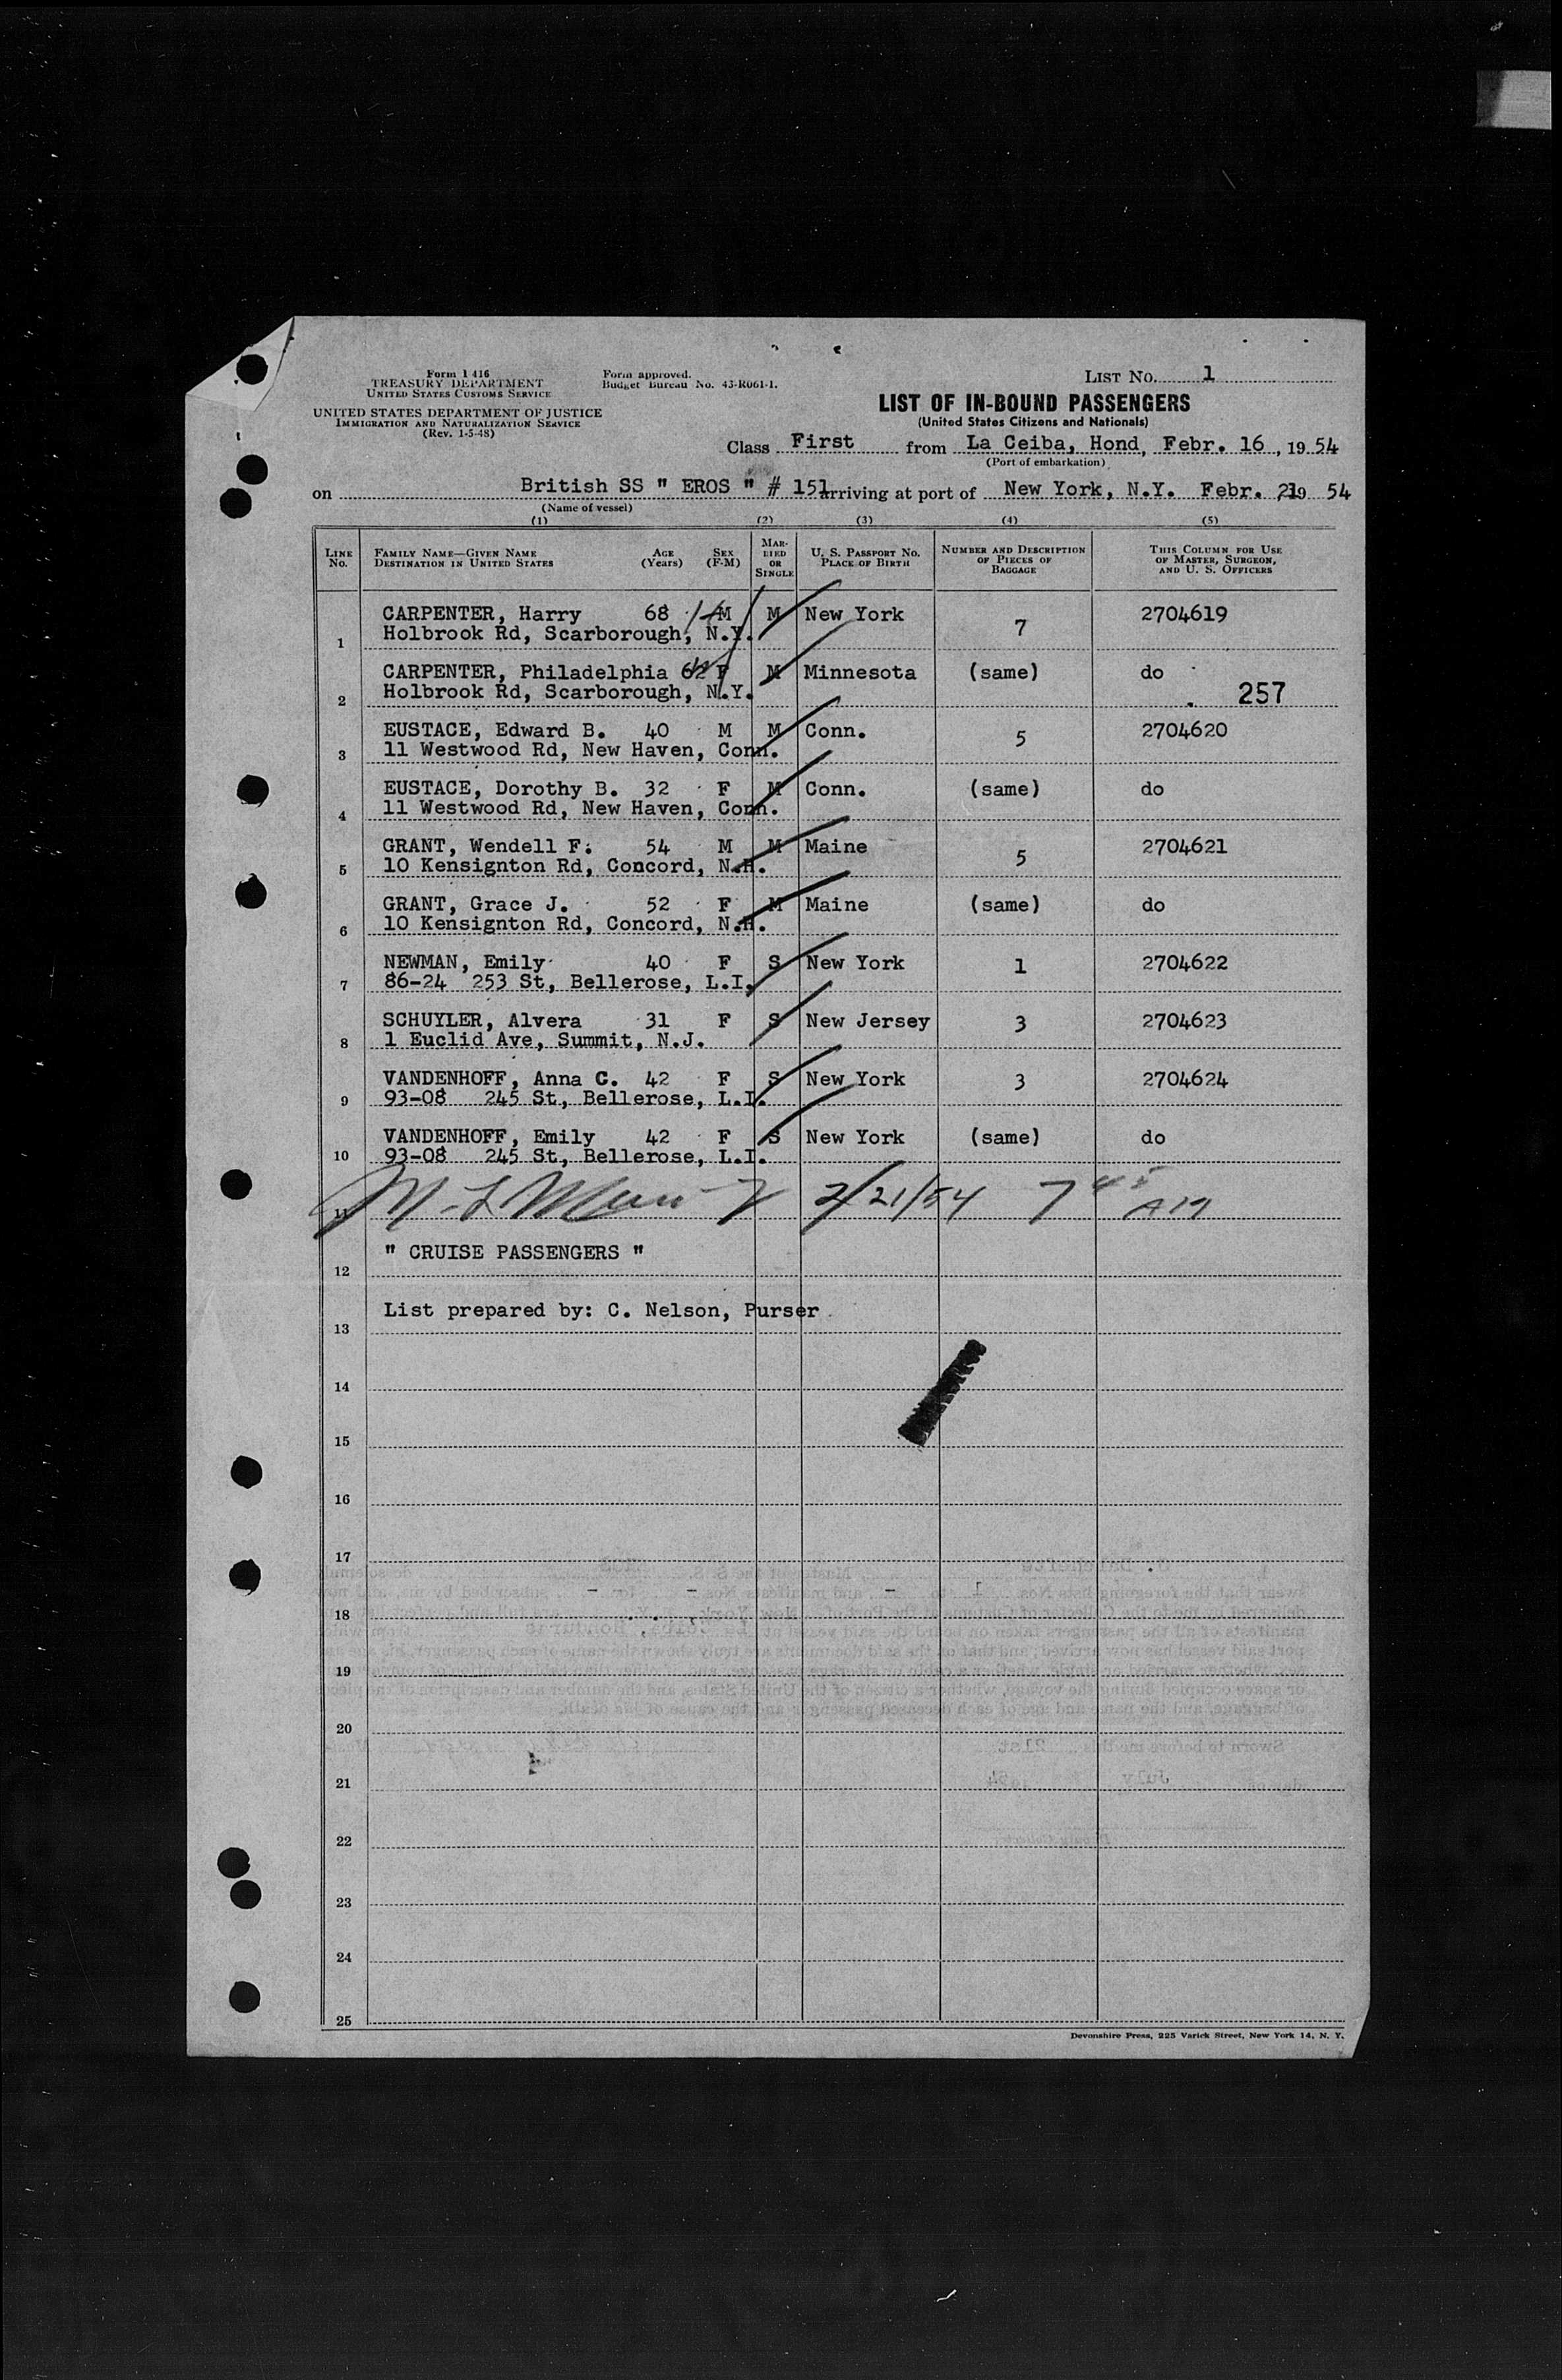 Form I 416
TREASURY DEPARTMENT
UNITED STATES CUSTOMS SERVICE
UNITED STATES DEPARTMENT OF JUSTICE
IMMIGRATION AND NATURALIZATION SERVICE
(Rev. 1-5-48)
Form approved.
Budget Bureau No. 43-R061-1.
LIST NO. 1
LIST OF IN-BOUND PASSENGERS
(United States Citizens and Nationals)
Class First from La Ceiba, Hond, Febr. 16, 1954
(Port of embarkation)
on British SS " EROS " # 151 arriving at port of New York, N.Y. Febr. 21 19 54
(Name of vessel)
(1) (2) (3) (4) (5)
LINE No. FAMILY NAME—GIVEN NAME DESTINATION IN UNITED STATES AGE (Years) SEX (F-M) MARRIED OR SINGLE U. S. PASSPORT NO. PLACE OF BIRTH NUMBER AND DESCRIPTION OF PIECES OF BAGGAGE THIS COLUMN FOR USE OF MASTER, SURGEON, AND U. S. OFFICERS
CARPENTER, Harry 68 M M New York 7 2704619
1 Holbrook Rd, Scarborough, N.Y.
CARPENTER, Philadelphia 62 F M Minnesota (same) do
2 Holbrook Rd, Scarborough, N.Y. 257
EUSTACE, Edward B. 40 M M Conn. 5 2704620
3 11 Westwood Rd, New Haven, Conn.
EUSTACE, Dorothy B. 32 F M Conn. (same) do
4 11 Westwood Rd, New Haven, Conn.
GRANT, Wendell F. 54 M M Maine 5 2704621
5 10 Kensignton Rd, Concord, N.H.
GRANT, Grace J. 52 F M Maine (same) do
6 10 Kensignton Rd, Concord, N.H.
NEWMAN, Emily 40 F S New York 1 2704622
7 86-24 253 St, Bellerose, L.I.
SCHUYLER, Alvera 31 F S New Jersey 3 2704623
8 1 Euclid Ave, Summit, N.J.
VANDENHOFF, Anna C. 42 F S New York 3 2704624
9 93-08 245 St, Bellerose, L.I.
VANDENHOFF, Emily 42 F S New York (same) do
10 93-08 245 St, Bellerose, L.I.
11 2/21/54
" CRUISE PASSENGERS "
12
List prepared by: C. Nelson, Purser
13
14
15
16
17
18
19
20
21
22
23
24
25
Devonshire Press, 225 Varick Street, New York 14, N. Y.